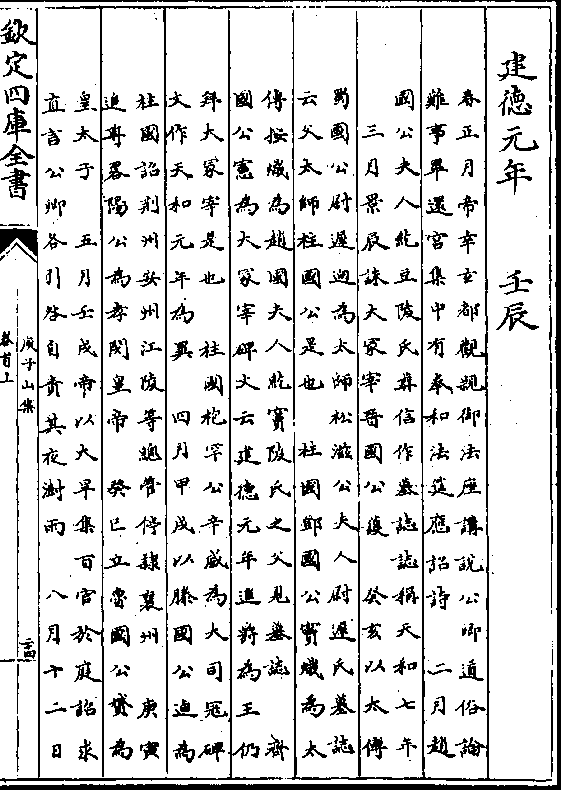 建德元年　壬辰
春正月帝幸玄都觀親御法座講說公卿道俗論
難事畢還宮集中有奉和法筵應詔詩　二月趙
國公夫人紇豆陵氏葬信作墓誌誌稱天和七年
三月景辰誅大冢宰晉國公護　癸亥以太傅
蜀國公尉遲迥為太師松滋公夫人尉遲氏墓誌
云父太師柱國公是也　柱國鄧國公竇熾為太
傅按熾為趙國夫人紇竇陵氏之父見墓誌　齊
國公憲為大冢宰碑文云建德元年進爵為王仍
拜大冢宰是也　柱國枹罕公辛威為大司冦碑
文作天和元年為異　四月甲戌以滕國公逌為
柱國詔荆州安州江陵等總管停隸襄州　庚寅
追尊畧陽公為孝閔皇帝　癸巳立魯國公贇為
皇太子　五月壬戌帝以大旱集百官於庭詔求
直言公卿各引咎自責其夜澍雨　八月十二日
欽定四庫全書
庾子山集
卷首上